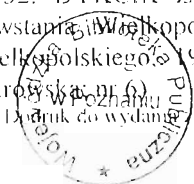 wstania Wielkopo
elkopolskiego, 19
rowska; nr 6)
Dodruk do wydania
Wojewódzka Biblioteka Publiczna
w Poznaniu